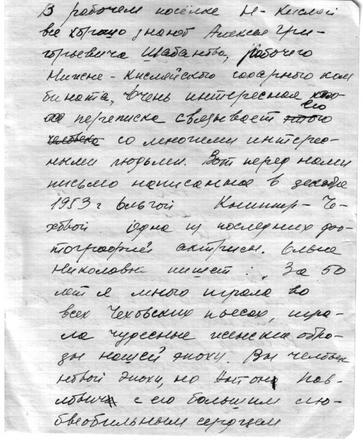 В рабочем посёлке Н-Кислей
все хорошо знают Алексея Гри-
горьевича Шабанова, рабочего
Нижне-Кислейского сахарного ком
бината, очень интересная
переписка связывает его
со многими интерес-
ными людьми. Вот перед нами
письмо написанное в декабре
1953 г Ольгой Книппер-Че-
ховой одна из последних фо-
тографий актрисы. Ольга
Николаевна пишет: "За 50
лет я много играла во
всех Чеховских пьесах, игра-
ла чудесные женские обра-
зы нашей эпохи. Вы человек
новой эпохи, но Антон Пав-
лович с его большим лю-
бвеобильным сердцем